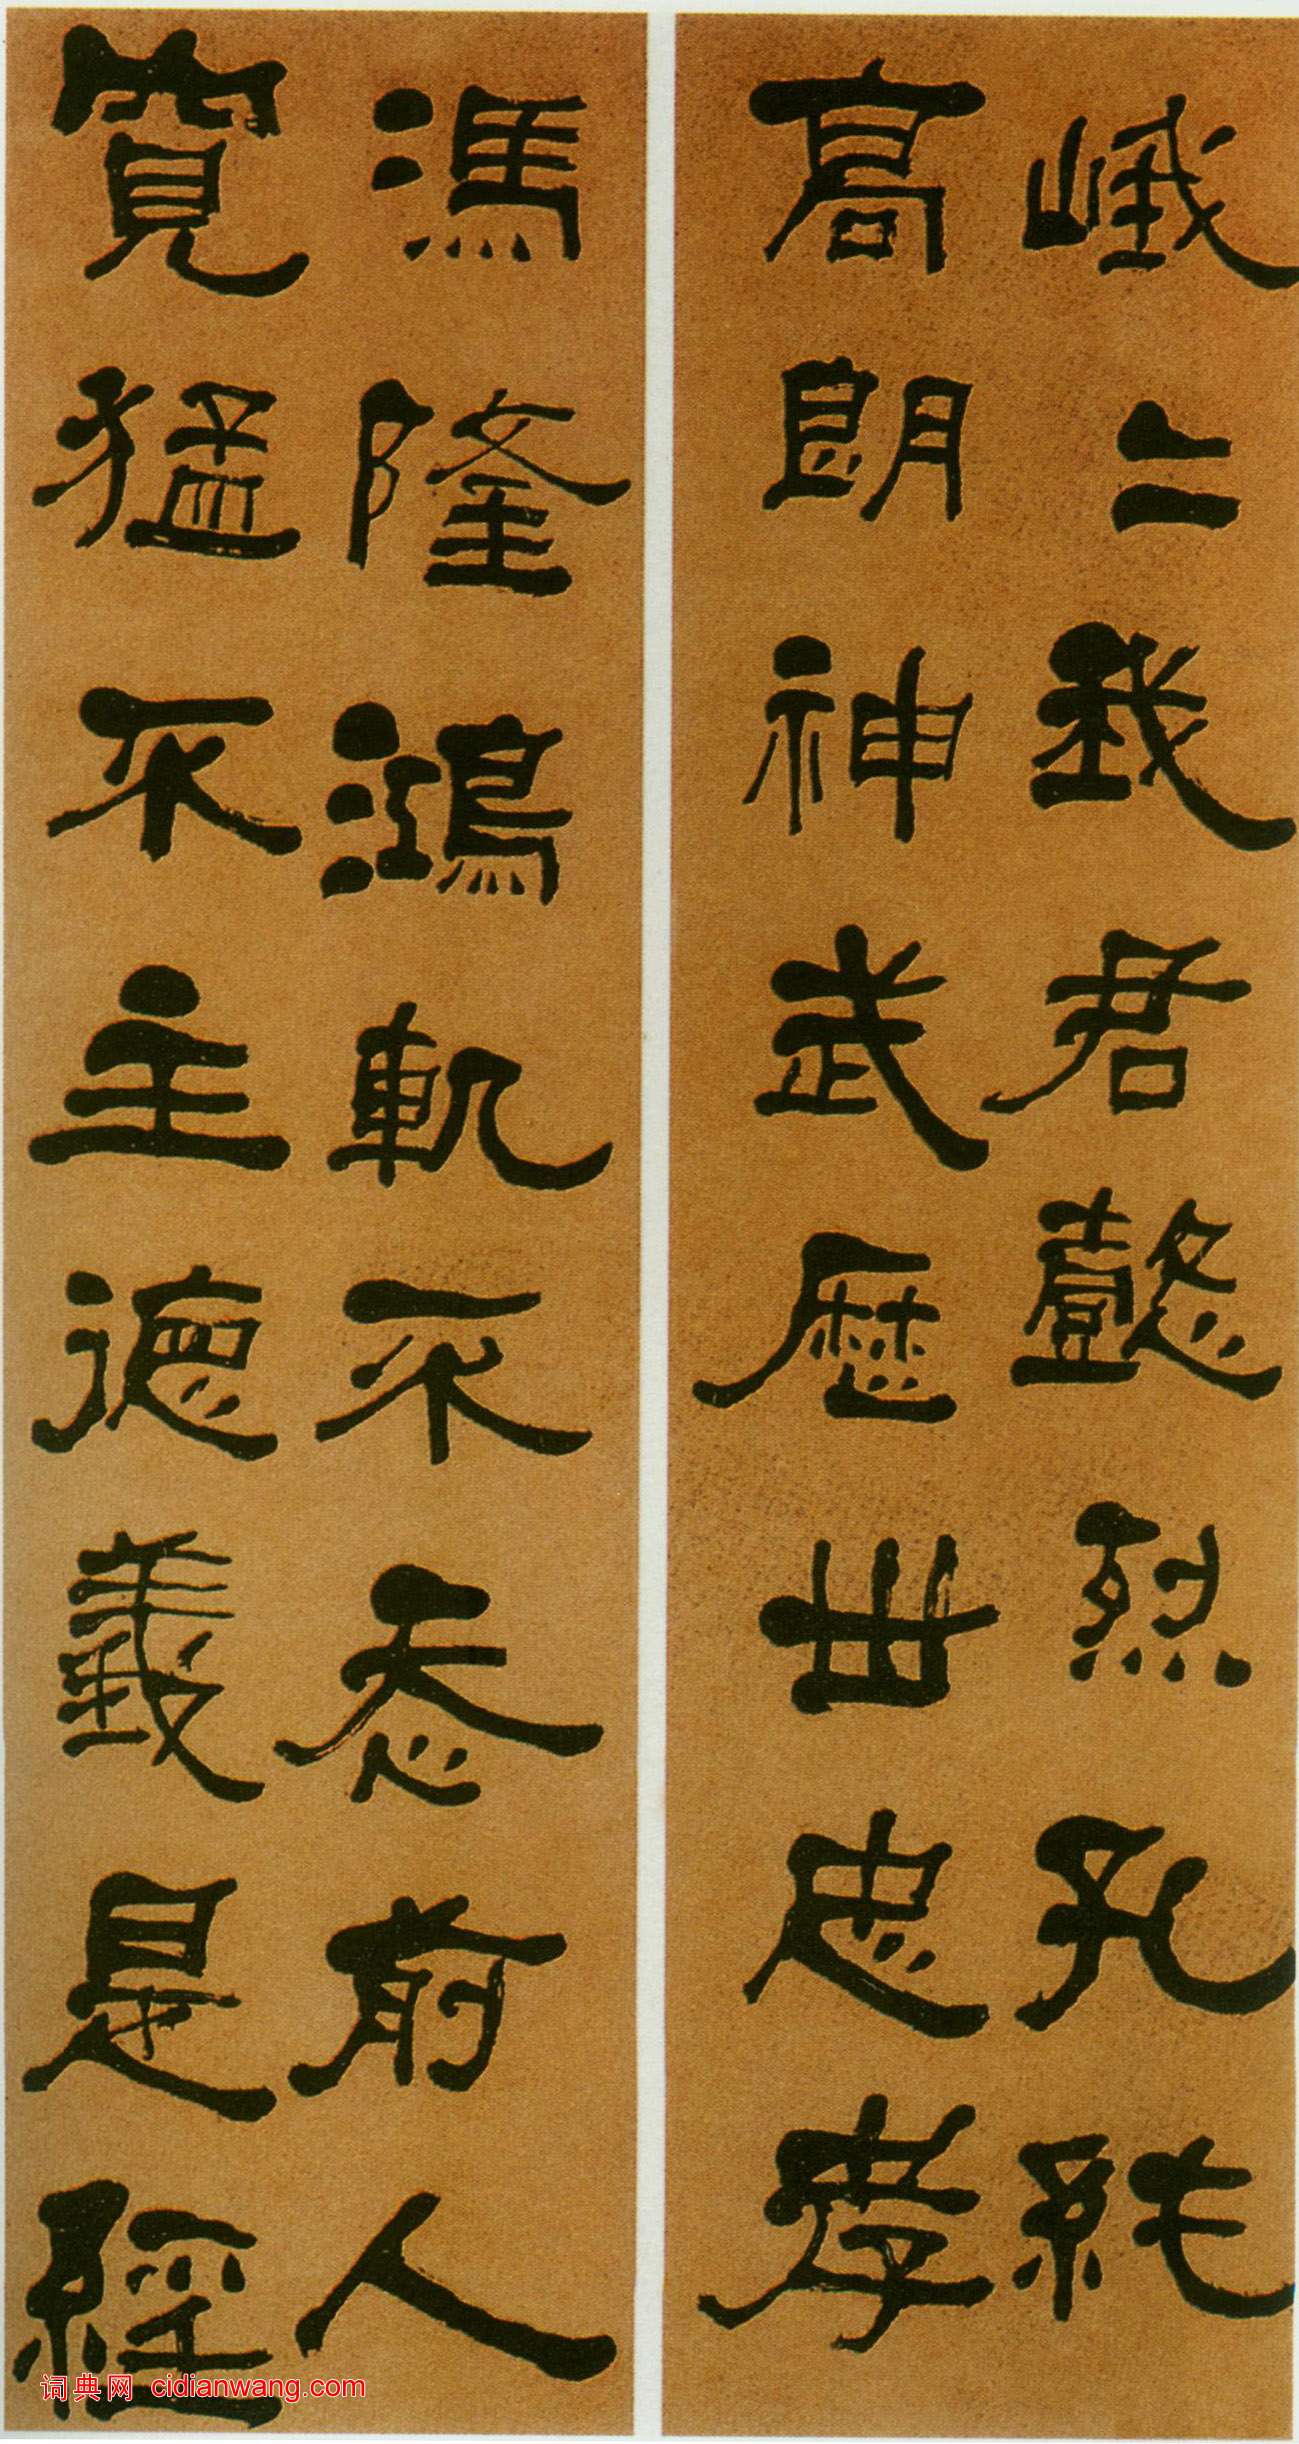 峨〻我君懿烈孔純
高朗神武歷世忠孝
馮隆鴻軌不忝前人
寬猛不主德義是經
词典网 cidianwang.com